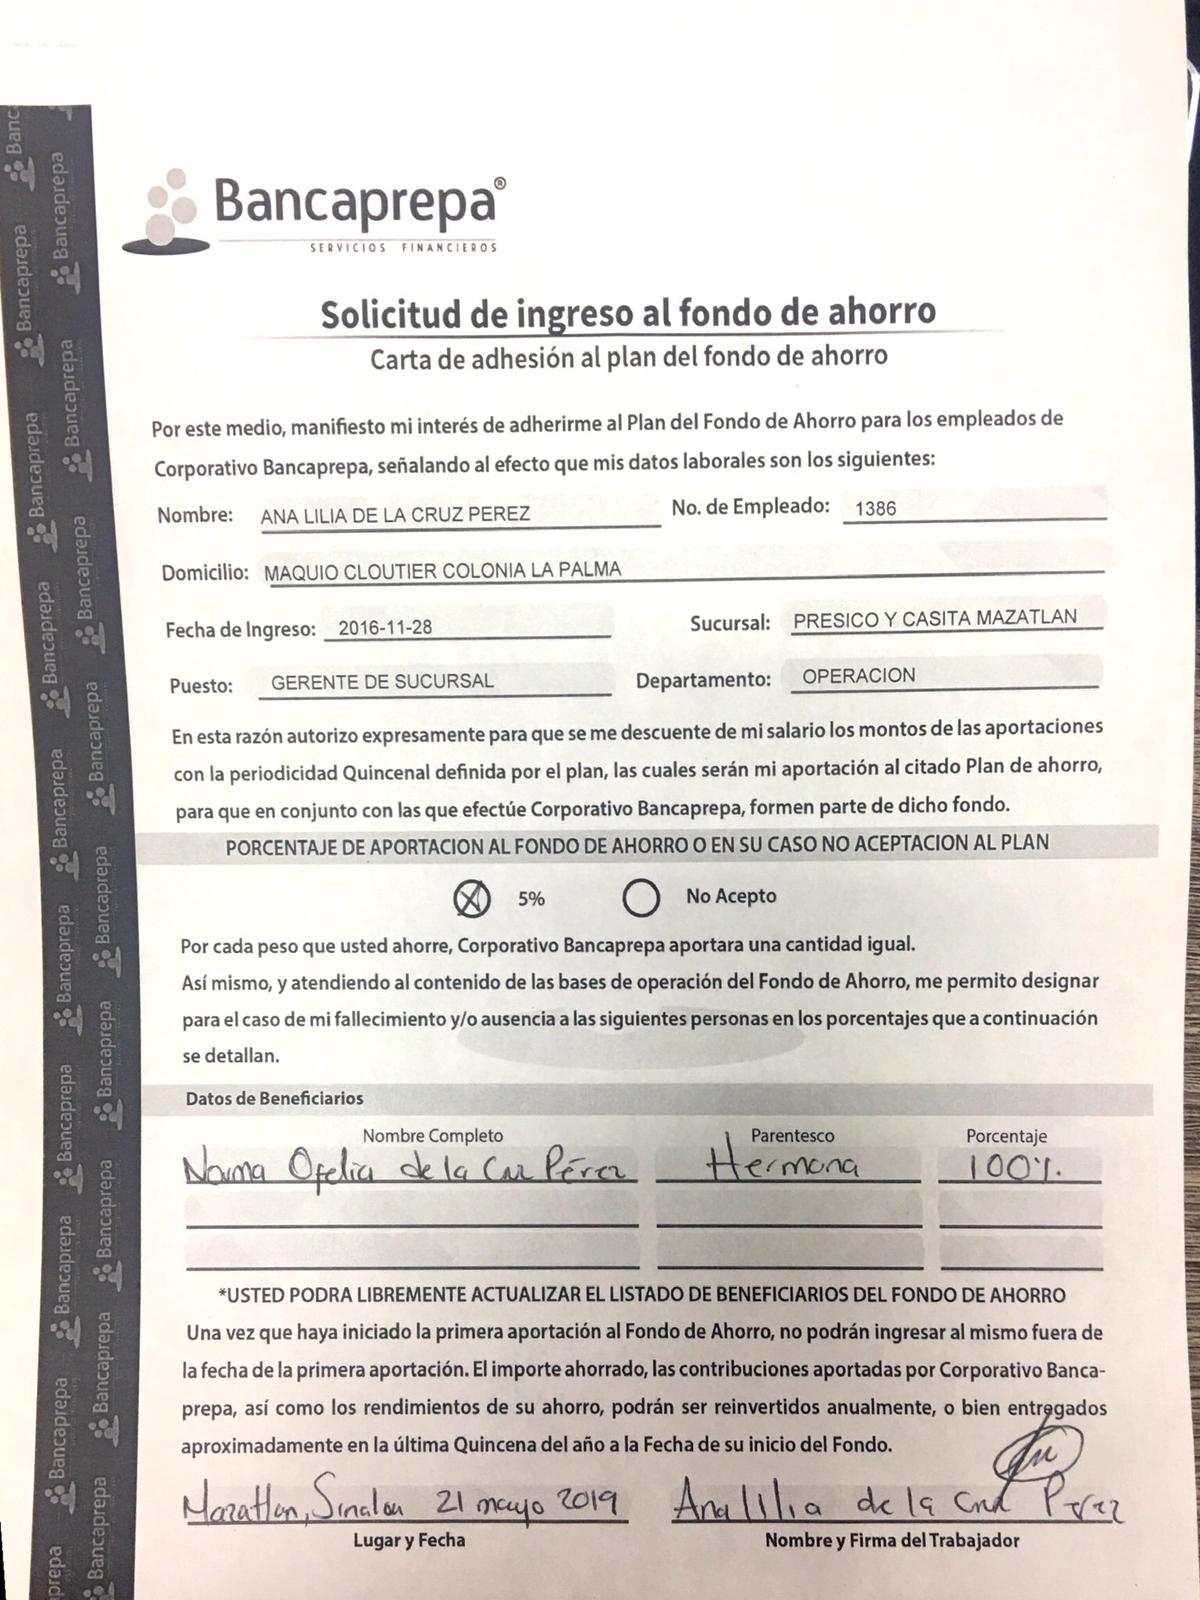 Bancaprepa®
SERVICIOS FINANCIEROS
Solicitud de ingreso al fondo de ahorro
Carta de adhesión al plan del fondo de ahorro
Por este medio, manifiesto mi interés de adherirme al Plan del Fondo de Ahorro para los empleados de
Corporativo Bancaprepa, señalando al efecto que mis datos laborales son los siguientes:
Nombre: ANA LILIA DE LA CRUZ PEREZ No. de Empleado: 1386
Domicilio: MAQUIO CLOUTIER COLONIA LA PALMA
Fecha de Ingreso: 2016-11-28 Sucursal: PRESICO Y CASITA MAZATLAN
Puesto: GERENTE DE SUCURSAL Departamento: OPERACION
En esta razón autorizo expresamente para que se me descuente de mi salario los montos de las aportaciones
con la periodicidad Quincenal definida por el plan, las cuales serán mi aportación al citado Plan de ahorro,
para que en conjunto con las que efectúe Corporativo Bancaprepa, formen parte de dicho fondo.
PORCENTAJE DE APORTACION AL FONDO DE AHORRO O EN SU CASO NO ACEPTACION AL PLAN
X 5% No Acepto
Por cada peso que usted ahorre, Corporativo Bancaprepa aportara una cantidad igual.
Así mismo, y atendiendo al contenido de las bases de operación del Fondo de Ahorro, me permito designar
para el caso de mi fallecimiento y/o ausencia a las siguientes personas en los porcentajes que a continuación
se detallan.
Datos de Beneficiarios
Nombre Completo Parentesco Porcentaje
Norma Ofelia de la Cruz Pérez Hermana 100%.
*USTED PODRA LIBREMENTE ACTUALIZAR EL LISTADO DE BENEFICIARIOS DEL FONDO DE AHORRO
Una vez que haya iniciado la primera aportación al Fondo de Ahorro, no podrán ingresar al mismo fuera de
la fecha de la primera aportación. El importe ahorrado, las contribuciones aportadas por Corporativo Banca-
prepa, así como los rendimientos de su ahorro, podrán ser reinvertidos anualmente, o bien entregados
aproximadamente en la última Quincena del año a la Fecha de su inicio del Fondo.
Mazatlan, Sinaloa 21 mayo 2019 Ana lilia de la Cruz Perez
Lugar y Fecha Nombre y Firma del Trabajador